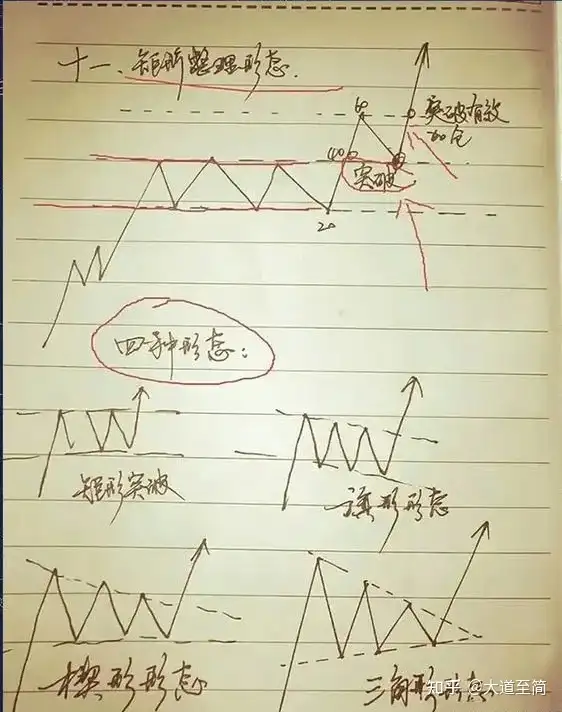 十一、矩形整理形态.
60
突破有效
60仓
40
突破
20
四种形态:
矩形突破
旗形形态
楔形形态
三角形形态
知乎 @大道至简